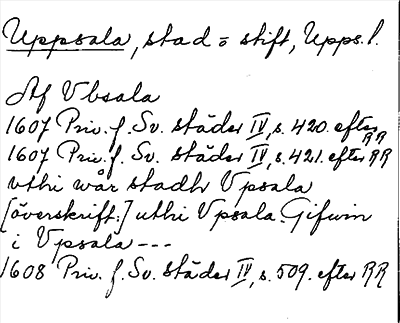 Uppsala, stad o stift, Upps. l.
Af Vbsala
1607 Priv. f. Sv. städer IV, s. 420. efter RR
1607 Priv. f. Sv. städer IV, s. 421. efter RR
vthi wår stadh Vpsala
[överskrift:] uthi Vpsala. Gifwin
i Vpsala ---
1608 Priv. f. Sv. städer IV, s. 509. efter RR